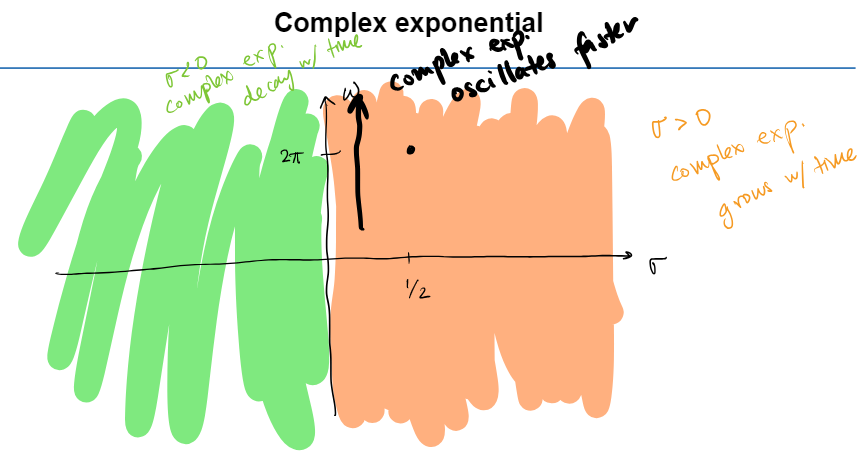 Complex exponential
σ<0
complex exp.
decay w/ time
complex exp.
oscillates faster
ω
2π
σ > 0
complex exp.
grows w/ time
σ
1/2